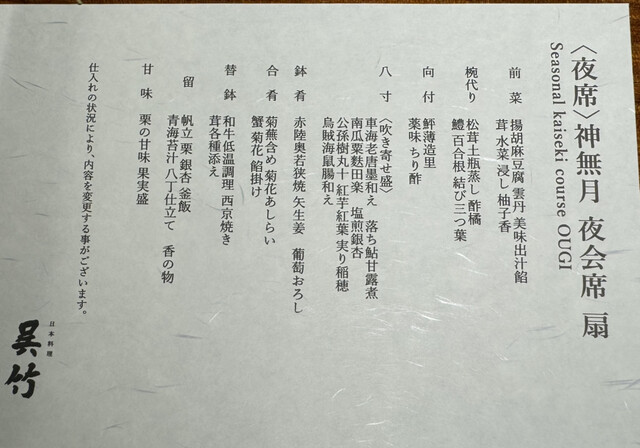 〈夜席〉神無月 夜会席 扇
Seasonal kaiseki course OUGI
前菜 揚胡麻豆腐 雲丹 美味出汁餡
茸 水菜 浸し 柚子香
椀代り 松茸土瓶蒸し 酢橘
鱧 百合根 結び三つ葉
向付 鮃薄造里
薬味 ちり酢
八寸 〈吹き寄せ盛〉
車海老唐墨和え 落ち鮎甘露煮
南瓜粟麩田楽 塩煎銀杏
公孫樹丸十 紅芋紅葉 実り稲穂
烏賊海鼠腸和え
鉢肴 赤陸奥若狭焼 矢生姜 葡萄おろし
合肴 菊蕪含め 菊花あしらい
蟹 菊花 餡掛け
替鉢 和牛低温調理 西京焼き
茸各種添え
留 帆立 栗 銀杏 釜飯
青海苔汁 八丁仕立て 香の物
甘味 栗の甘味 果実盛
仕入れの状況により、内容を変更する事がございます。
日本料理
呉竹